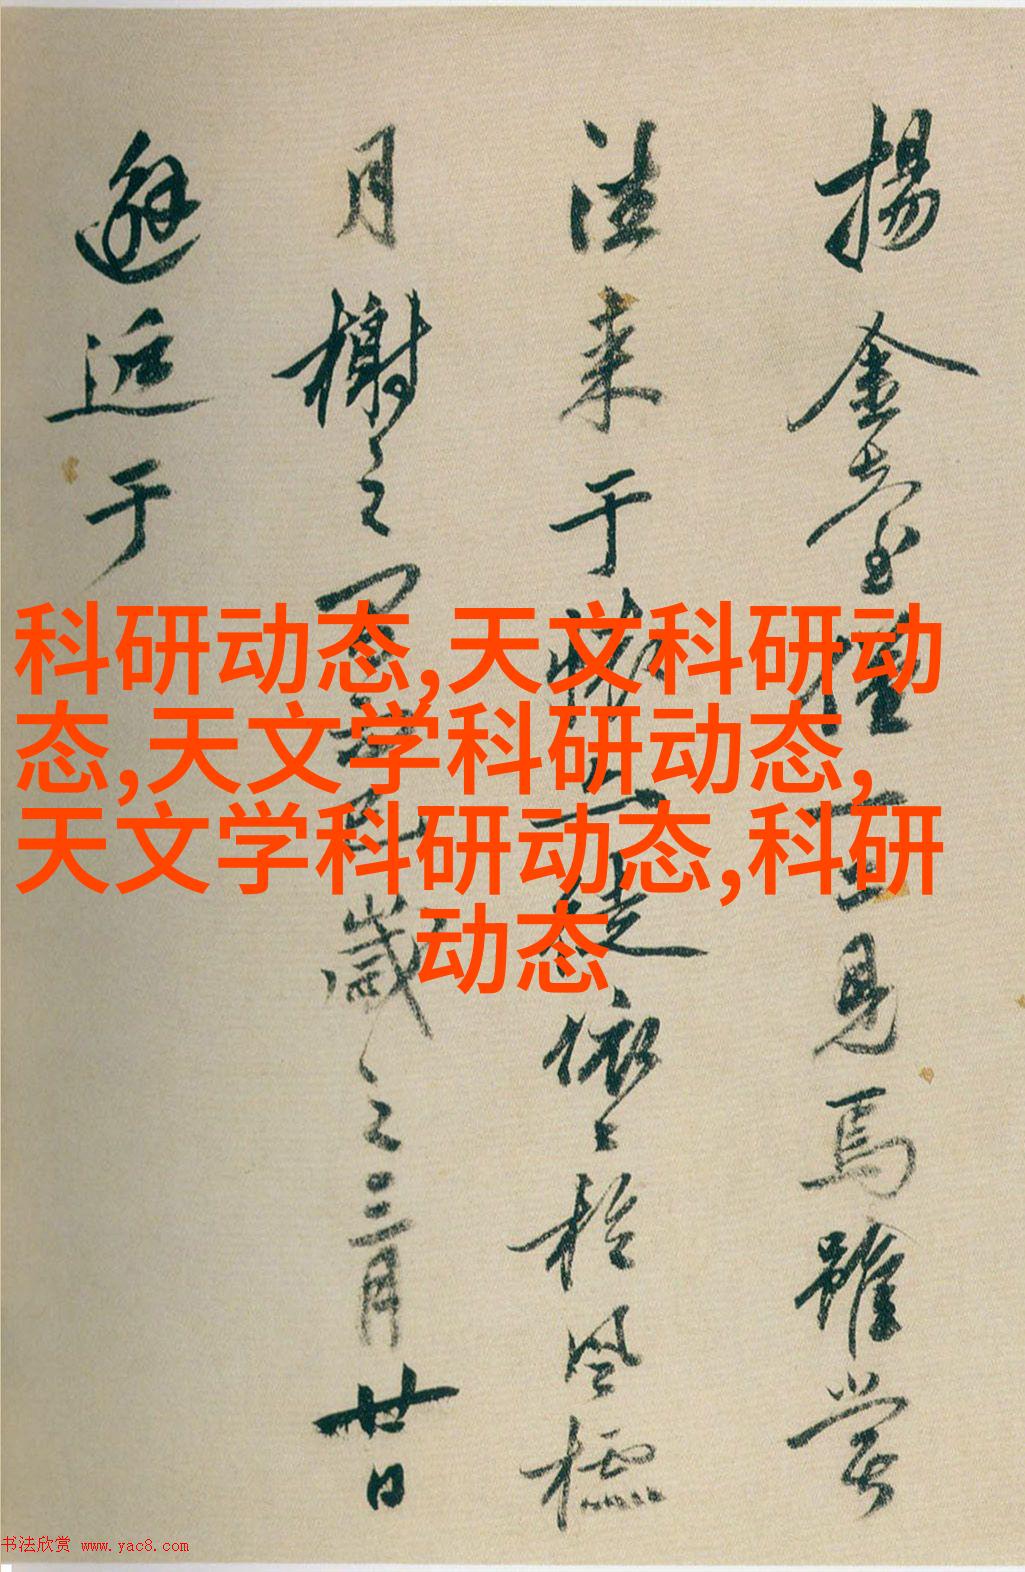 揚金臺
見焉雖嘗
往来于
徒依〻於風櫺
月榭之
歲之三月廿日
邂近于
科研动态,天文科研动
态,天文学科研动态,
天文学科研动态,科研
动态
书法欣赏 www.yac8.com